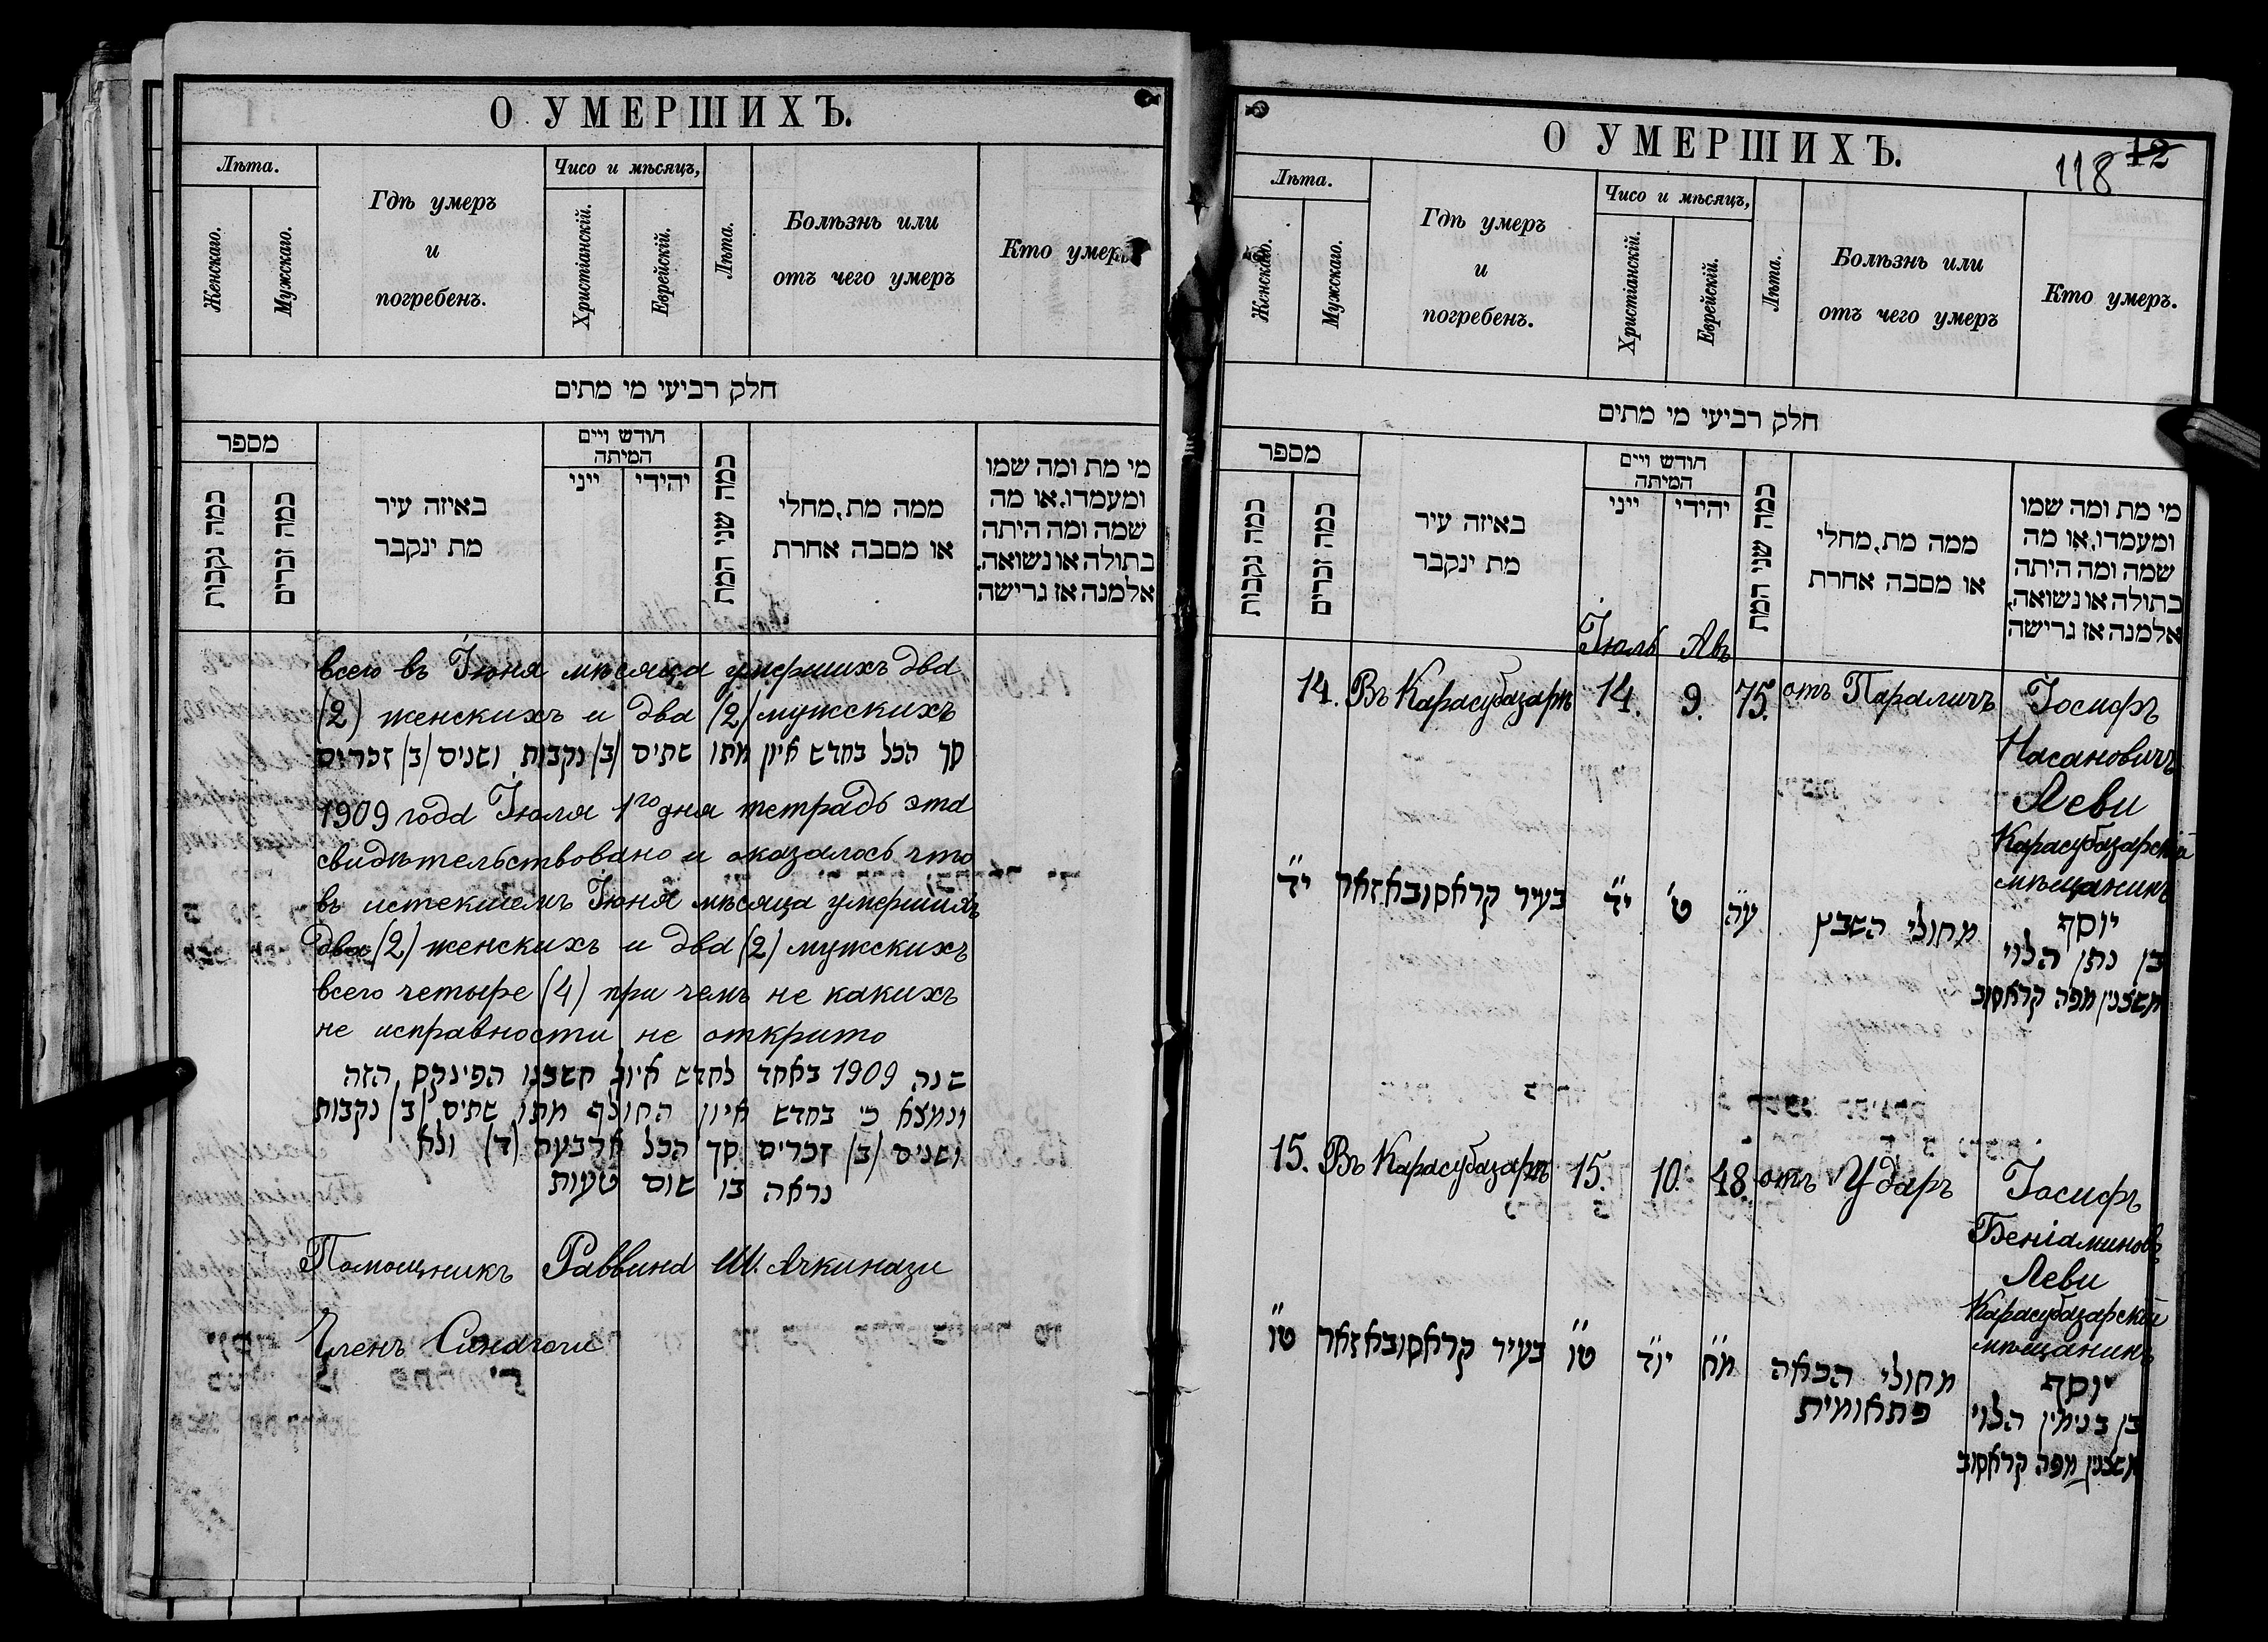 О УМЕРШИХЪ.
Лѣта.
Женскаго.
Мужскаго.
Гдѣ умеръ
и
погребенъ.
Чисо и мѣсяцъ,
Христіанскій.
Еврейскій.
Лѣта.
Болѣзнь или
отъ чего умеръ
Кто умеръ
חלק רביעי מי מתים
מספר
כמה נקבות
כמה זכרים
באיזה עיר
מת ינקבר
חודש ויים
המיתה
ייני
יהידי
כמה שני המת
ממה מת, מחלי
או מסבה אחרת
מי מת ומה שמו
ומעמדו, או מה
שמה ומה היתה
בתולה או נשואה,
אלמנה אז גרישה
всего въ Іюня мѣсяца умершихъ два
(2) женскихъ и два (2) мужскихъ
סך הכל בחדש איון מתו שתים (ב) נקבות ושנים (ב) זכרים
1909 года Іюля 1го дня тетрадь эта
свидѣтельствовано и оказалось что
въ истекшемъ Іюня мѣсяца умершихъ
два (2) женскихъ и два (2) мужскихъ
всего четыре (4) при чемъ не какихъ
не исправности не открито
שנה 1909 באחד לחדש איול חשבנו הפינקס הזה
ונמצא כי בחדש איון החולף מתו שתים (ב) נקבות
ושנים (ב) זכרים סך הכל ארבעה (ד) ולא
נראה בו שום טעות
Помощникъ Раввина Ш. Ачкинази
Членъ Синагоги
О УМЕРШИХЪ.
118 12
Лѣта.
Женскаго.
Мужскаго.
Гдѣ умеръ
и
погребенъ.
Чисо и мѣсяцъ,
Христіанскій.
Еврейскій.
Лѣта.
Болѣзнь или
отъ чего умеръ
Кто умеръ.
חלק רביעי מי מתים
מספר
כמה נקבות
כמה זכרים
באיזה עיר
מת ינקבר
חודש ויים
המיתה
ייני
יהידי
כמה שני המת
ממה מת, מחלי
או מסבה אחרת
מי מת ומה שמו
ומעמדו, או מה
שמה ומה היתה
בתולה או נשואה,
אלמנה אז גרישה
Іюль Авъ
14. Въ Карасубазарѣ 14. 9. 75. отъ Параличъ Іосифъ
Насановичъ
Леви
Карасубазарскій
мѣщанинъ
י״ד בעיר קראסובאזאר י״ד ט׳ ע״ה מחולי השבץ יוסף
בן נתן הלוי
משצנין מפה קראסוב
15. Въ Карасубазарѣ 15. 10. 48. отъ Ударъ Іосифъ
Беніаминовъ
Леви
Карасубазарскій
мѣщанинъ
ט״ו בעיר קראסובאזאר ט״ו יו״ד מ״ח מחולי הכאה
פתאומית
יוסף
בן בנימין הלוי
משצנין מפה קראסוב